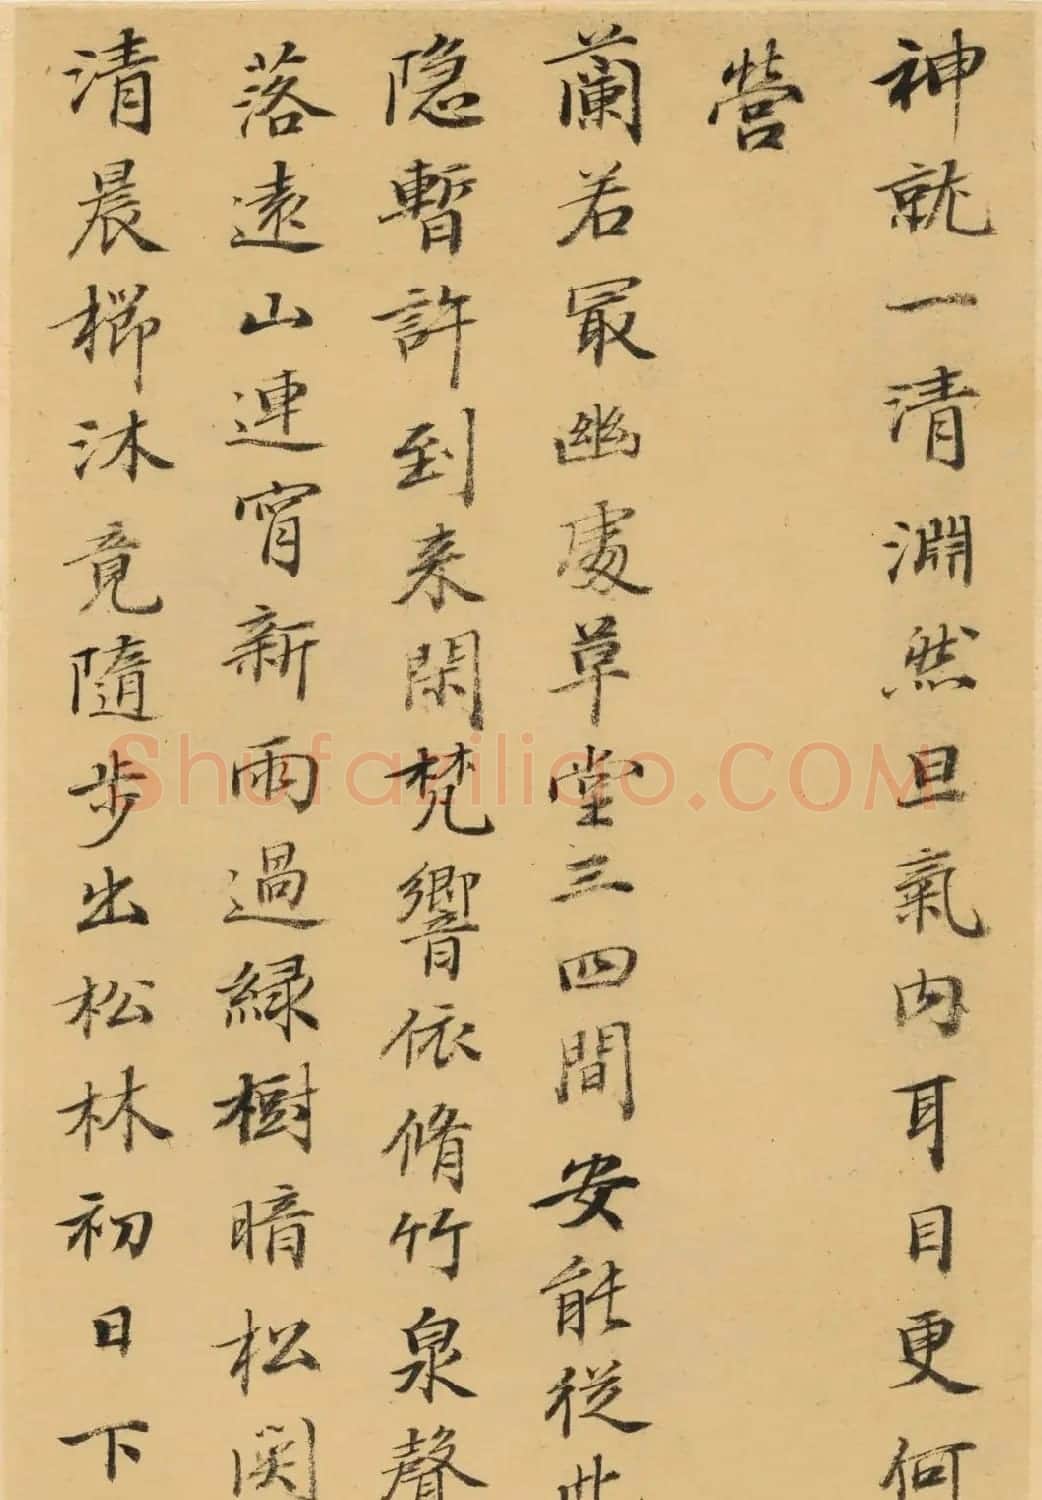 神就一清淵然旦氣内耳目更何
營
蘭若冣幽處草堂三四間安能從此
隐暫許到来閑梵響依脩竹泉聲
落遠山連宵新雨過緑樹暗松関
清晨櫛沐竟隨步出松林初日下
shufaziliao.COM